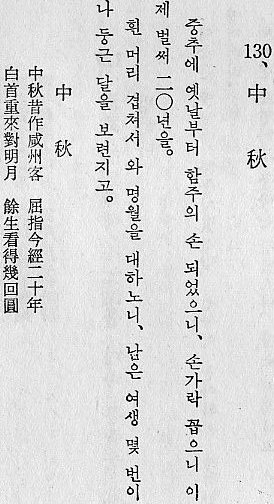 130、中秋
중추에 옛날부터 함주의 손 되었으니、손가락 꼽으니 이
제 벌써 二〇년을。
흰 머리 겹쳐서 와 명월을 대하노니、남은 여생 몇 번이
나 둥근 달을 보련지고。
中秋
中秋昔作咸州客 屈指今經二十年
白首重來對明月 餘生看得幾回圓